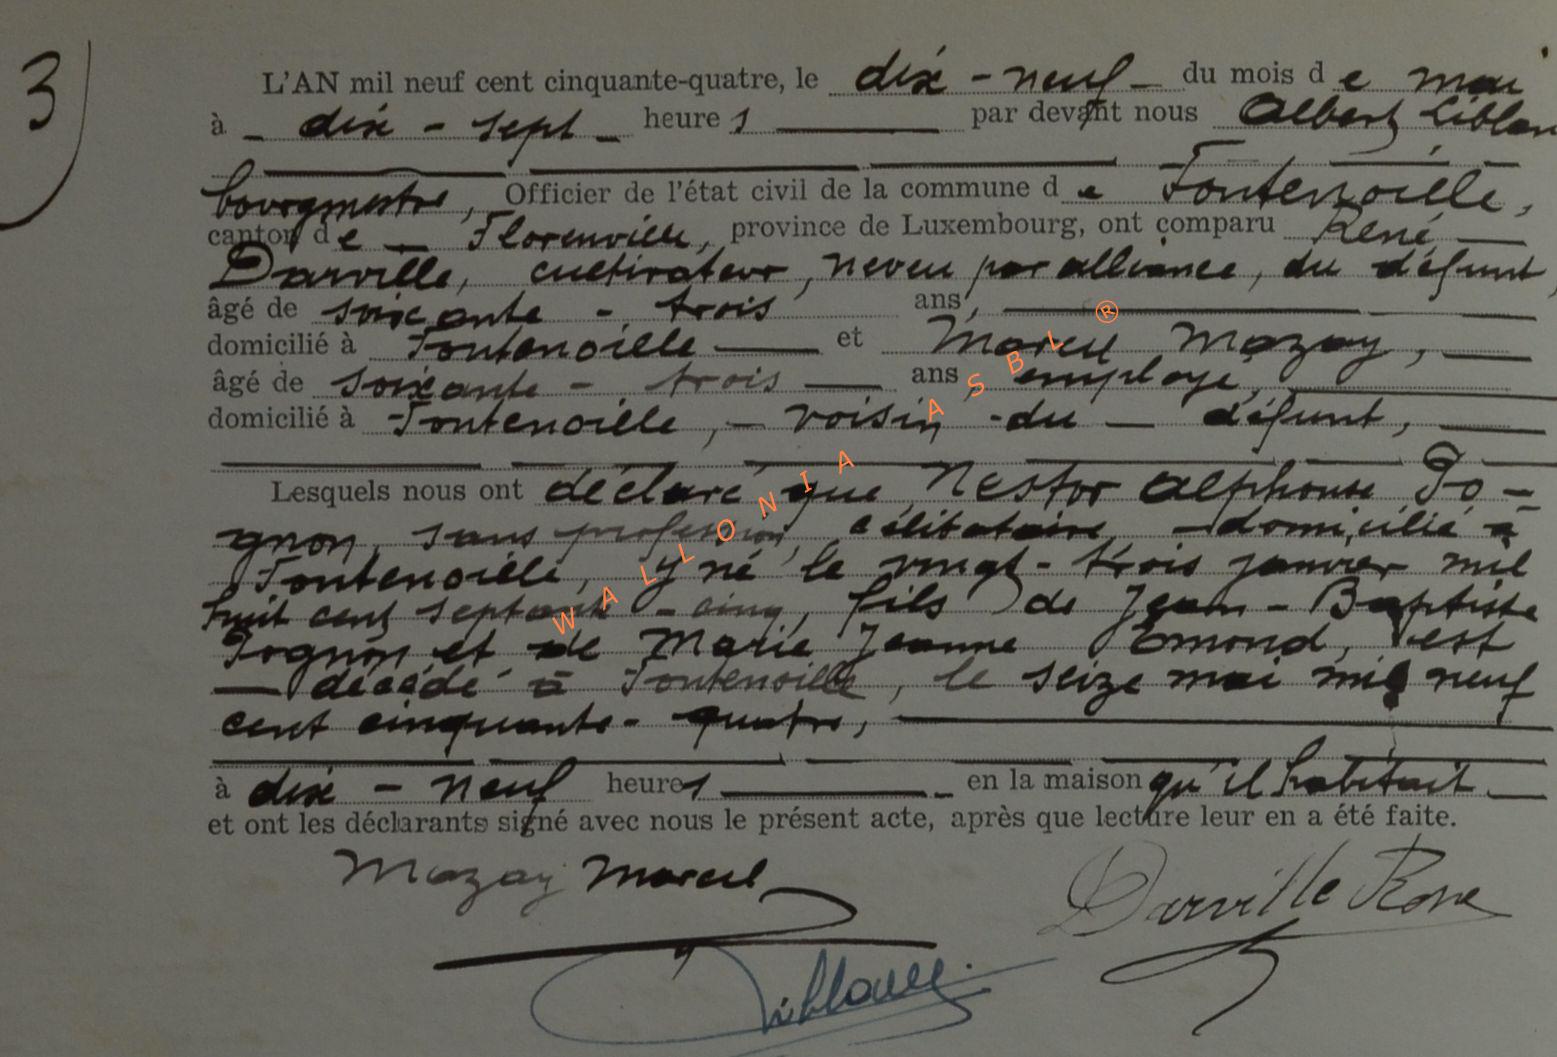 3
L'AN mil neuf cent cinquante-quatre, le dix-neuf du mois de mai
à dix-sept heures par devant nous Albert Liblan
bourgmestre, Officier de l'état civil de la commune de Fontenoille,
canton de Florenville, province de Luxembourg, ont comparu René
Darville, cultivateur, neveu par alliance, du défunt,
âgé de soixante-trois ans,
domicilié à Fontenoille et Marcel Mazay,
âgé de soixante-trois ans, employé,
domicilié à Fontenoille, voisin du défunt,
Lesquels nous ont déclaré que Nestor Alphonse Po-
gnon, sans profession, célibataire domicilié à
Fontenoille, y né le vingt-trois janvier mil
huit cent septante-cinq, fils de Jean-Baptiste
Pognon et de Marie Jeanne Emond, est
décédé à Fontenoille, le seize mai mil neuf
cent cinquante-quatre,
à dix-neuf heures en la maison qu'il habitait
et ont les déclarants signé avec nous le présent acte, après que lecture leur en a été faite.
Mazay Marcel
Darville René
WALLONIA ASBL ®